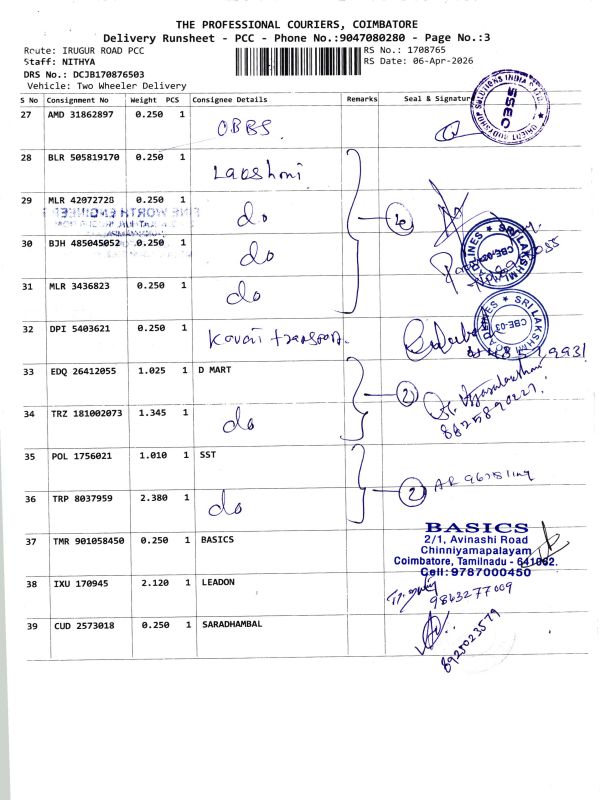 THE PROFESSIONAL COURIERS, COIMBATORE
Delivery Runsheet - PCC - Phone No.:9047080280 - Page No.:3
Route: IRUGUR ROAD PCC
Staff: NITHYA
DRS No.: DCJB170876503
Vehicle: Two Wheeler Delivery
RS No.: 1708765
RS Date: 06-Apr-2026
S No Consignment No Weight PCS Consignee Details Remarks Seal & Signature
27 AMD 31862897 0.250 1 OBBS
28 BLR 505819170 0.250 1 Lakshmi
29 MLR 42072728 0.250 1 do
30 BJH 485045052 0.250 1 do
31 MLR 3436823 0.250 1 do
32 DPI 5403621 0.250 1 Kovai transport.
33 EDQ 26412055 1.025 1 D MART
34 TRZ 181002073 1.345 1 do
2
35 POL 1756021 1.010 1 SST
36 TRP 8037959 2.380 1 do
2
37 TMR 901058450 0.250 1 BASICS
BASICS
2/1, Avinashi Road
Chinniyamapalayam
Coimbatore, Tamilnadu - 641062.
Cell: 9787000450
38 IXU 170945 2.120 1 LEADON
9863277009
39 CUD 2573018 0.250 1 SARADHAMBAL
8925023579
SSEC
SRI LAKSHMI
ROADLINES
SRI LAKSHMI
ROADLINES
CBE-03